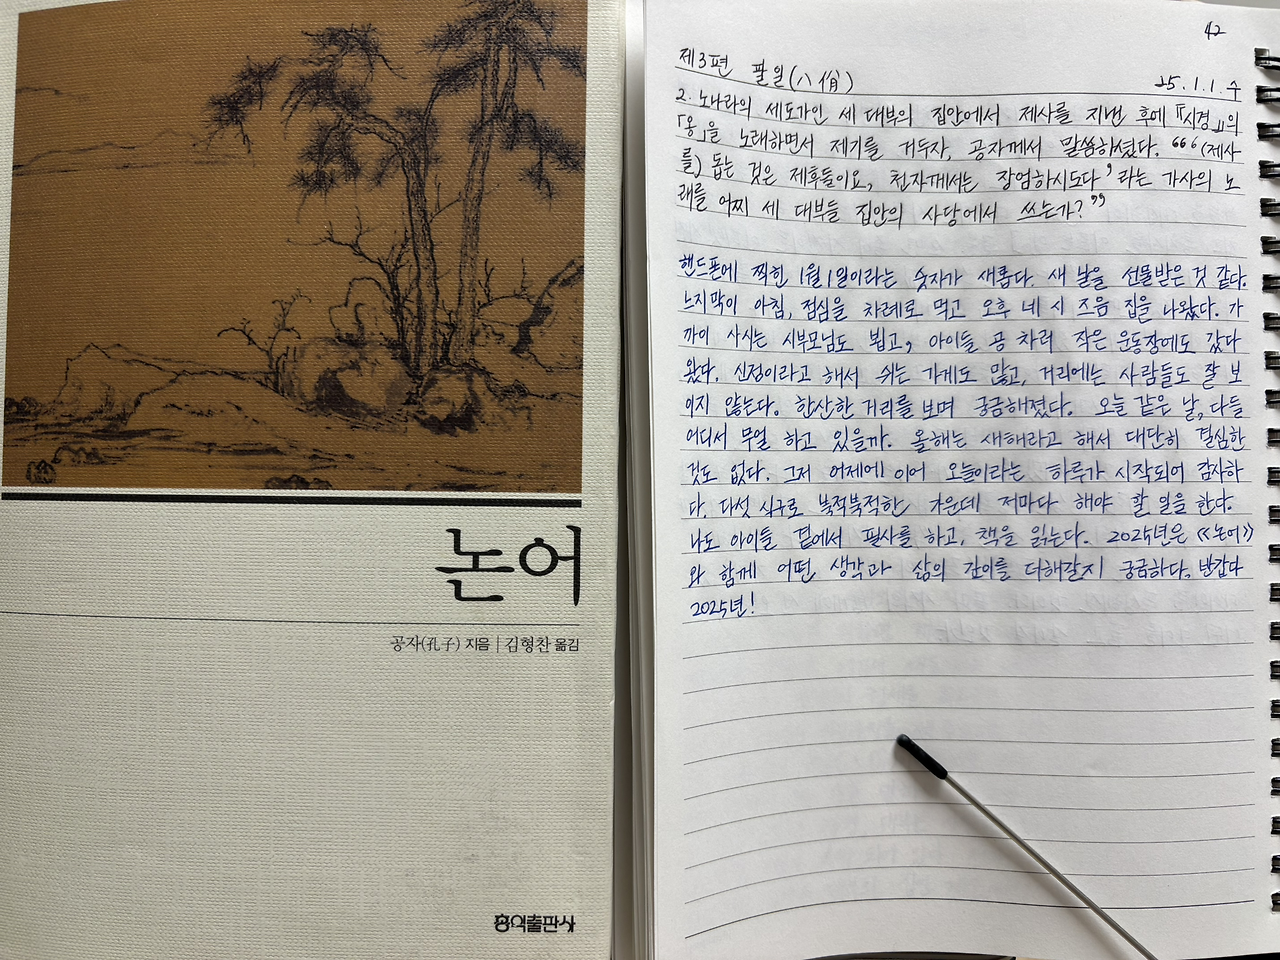 논어
공자(孔子) 지음 | 김형찬 옮김
홍익출판사
42
제3편 팔일(八佾)
25.1.1.수
2. 노나라의 세도가인 세 대부의 집안에서 제사를 지낸 후에 『시경』의
「옹」을 노래하면서 제기를 거두자, 공자께서 말씀하셨다. “‘(제사
를) 돕는 것은 제후들이요, 천자께서는 장엄하시도다’라는 가사의 노
래를 어찌 세 대부들 집안의 사당에서 쓰는가?”
핸드폰에 찍힌 1월 1일이라는 숫자가 새롭다. 새 날을 선물받은 것 같다.
느지막이 아침, 점심을 차례로 먹고 오후 네 시 즈음 집을 나왔다. 가
까이 사시는 시부모님도 뵙고, 아이들 공 차러 작은 운동장에도 갔다
왔다. 신정이라고 해서 쉬는 가게도 많고, 거리에는 사람들도 잘 보
이지 않는다. 한산한 거리를 보며 궁금해졌다. 오늘 같은 날, 다들
어디서 무얼 하고 있을까. 올해는 새해라고 해서 대단히 결심한
것도 없다. 그저 어제에 이어 오늘이라는 하루가 시작되어 감사하
다. 다섯 식구로 북적북적한 가운데 저마다 해야 할 일을 한다.
나도 아이들 곁에서 필사를 하고, 책을 읽는다. 2025년은 《논어》
와 함께 어떤 생각과 삶의 깊이를 더해갈지 궁금하다. 반갑다
2025년!